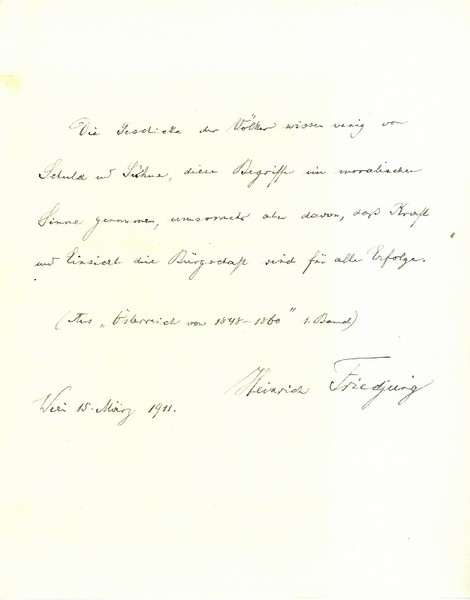 Die Geschicke der Völker wissen wenig von
Schuld u Sühne, diese Begriffe im moralischen
Sinne genommen, umsomehr aber davon, daß Kraft
und Einsicht die Bürgschaft sind für alle Erfolge.
(Aus „Österreich von 1848–1860" 1. Band)
Heinrich Friedjung
Wien 15. März 1911.